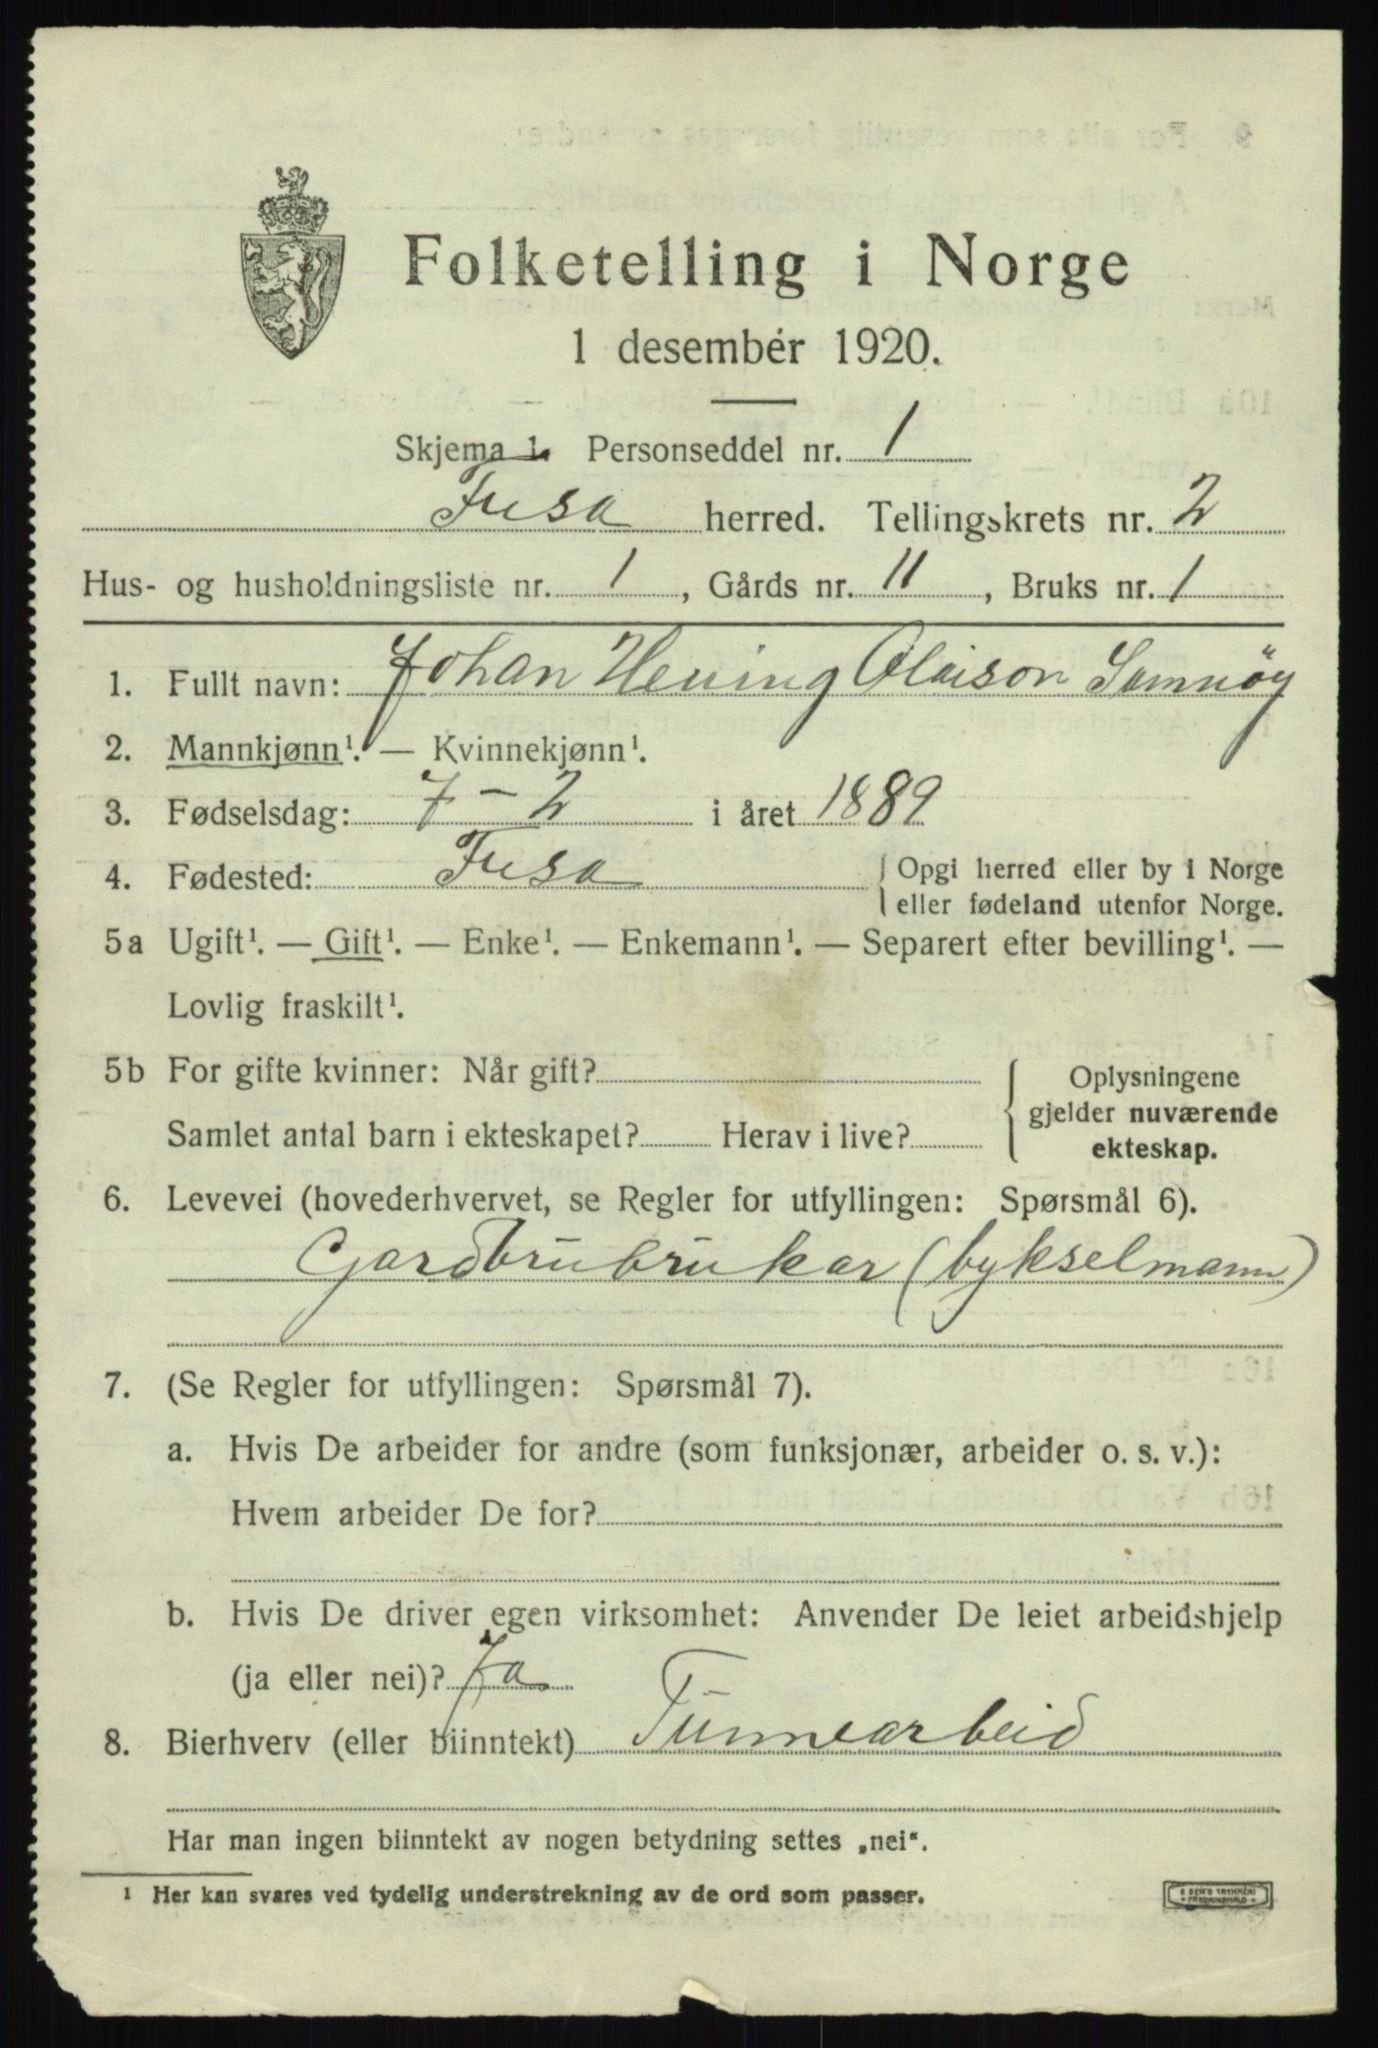 Folketelling i Norge
1 desember 1920.
Skjema 1. Personseddel nr. 1
Fusa herred. Tellingskrets nr. 2
Hus- og husholdningsliste nr. 1, Gårds nr. 11, Bruks nr. 1
1. Fullt navn: Johan Hening Olaison Samnøy
2. Mannkjønn¹. — Kvinnekjønn¹.
3. Fødselsdag: 7 – 2 i året 1889
4. Fødested: Fusa { Opgi herred eller by i Norge
eller fødeland utenfor Norge.
5a Ugift¹. — Gift¹. — Enke¹. — Enkemann¹. — Separert efter bevilling¹. —
Lovlig fraskilt¹.
5b For gifte kvinner: Når gift?
Samlet antal barn i ekteskapet? Herav i live?
Oplysningene
gjelder nuværende
ekteskap.
6. Levevei (hovederhvervet, se Regler for utfyllingen: Spørsmål 6).
Gardbrubrukar (bykselmann)
7. (Se Regler for utfyllingen: Spørsmål 7).
a. Hvis De arbeider for andre (som funksjonær, arbeider o. s. v.):
Hvem arbeider De for?
b. Hvis De driver egen virksomhet: Anvender De leiet arbeidshjelp
(ja eller nei)? Ja
8. Bierhverv (eller biinntekt) Tunnearbeid
Har man ingen biinntekt av nogen betydning settes „nei“.
¹ Her kan svares ved tydelig understrekning av de ord som passer.